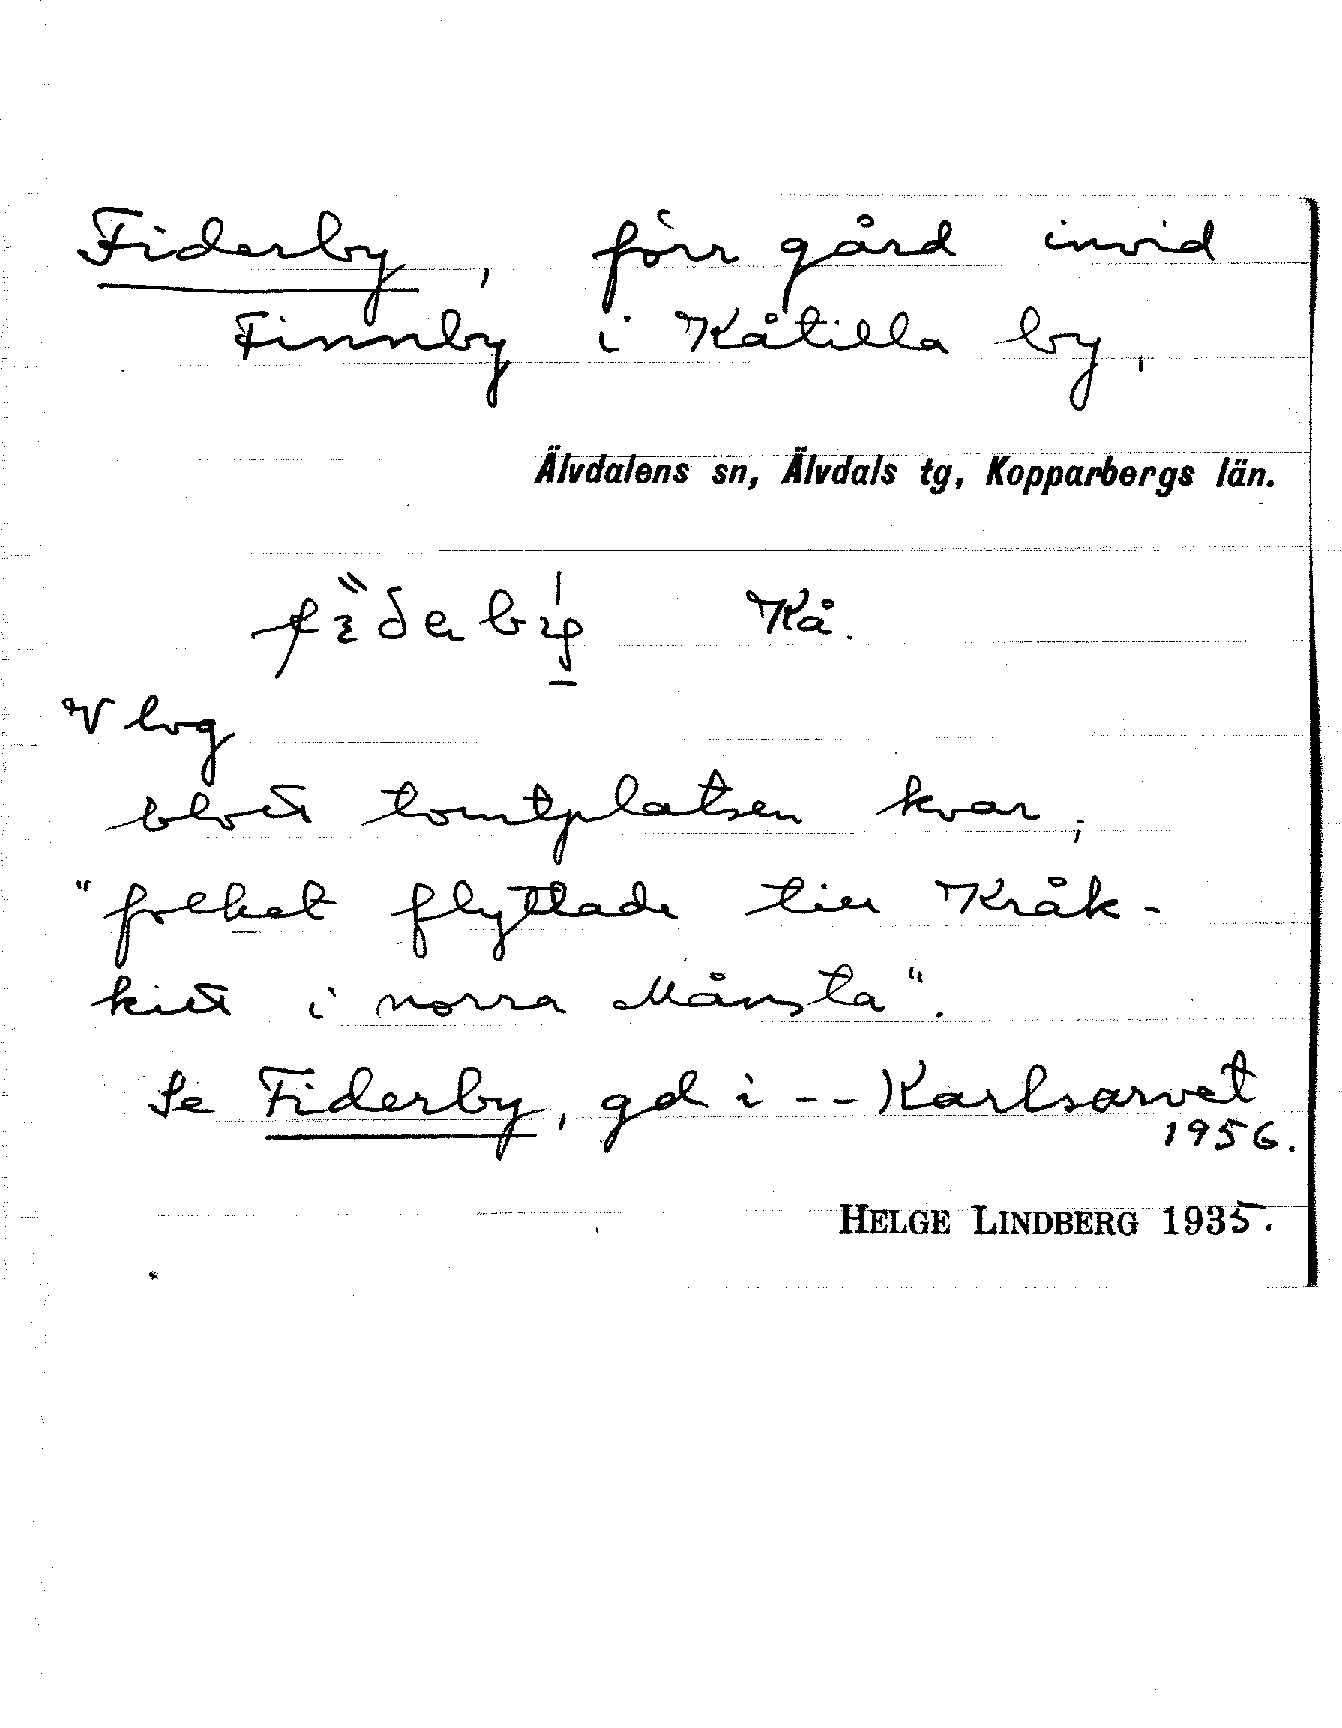 Fiderby, förr gård invid
Finnby i Kåtilla by,
Älvdalens sn, Älvdals tg, Kopparbergs län.
Kå.
blott tomtplatsen kvar,
"folket flyttade till Kråk-
kitt i norra Månsta".
Se Fiderby, gd i -- Karlsarvet
1956.
HELGE LINDBERG 1935.